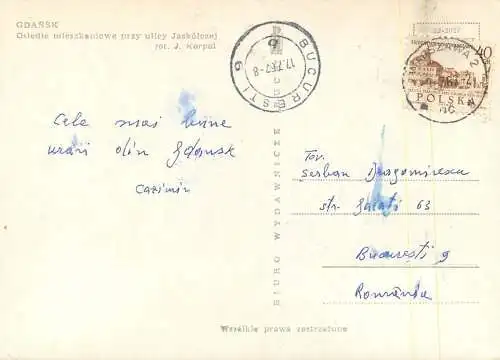 GDAŃSK
Osiedle mieszkaniowe przy ulicy Jaskółczej
fot. J. Korpal
22-2027
40
POLSKA
BUCURESTI 9
Cele mai bune
urări din Gdansk
Casimir
BIURO WYDAWNICZE
Tov.
Serban Dragomirescu
str. Galati 63
București 9
Românďa
Wszelkie prawa zastrzeżone